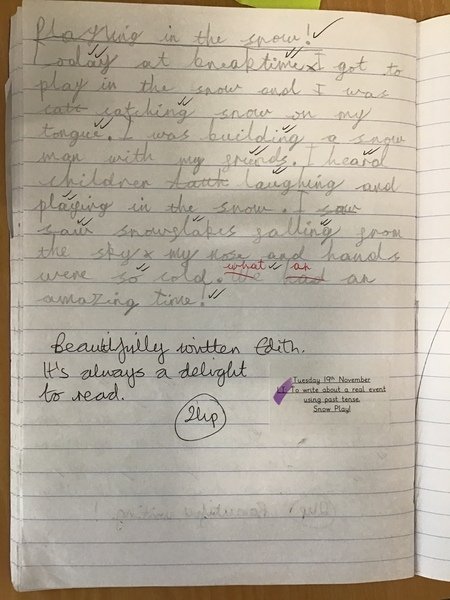 Playing in the snow!
Today at breaktime I got to
play in the snow and I was
catt catching snow on my
tongue. I was building a snow
man with my griends. I heard
children lauh laughing and
playing in the snow. I saw
saw snowflakes falling from
the sky my nose and hands
were so cold. what an
We had an
amazing time!
Beautifully written Edith.
It's always a delight
to read.
2hp
Tuesday 19th November
L.I. To write about a real event
using past tense.
Snow Play!